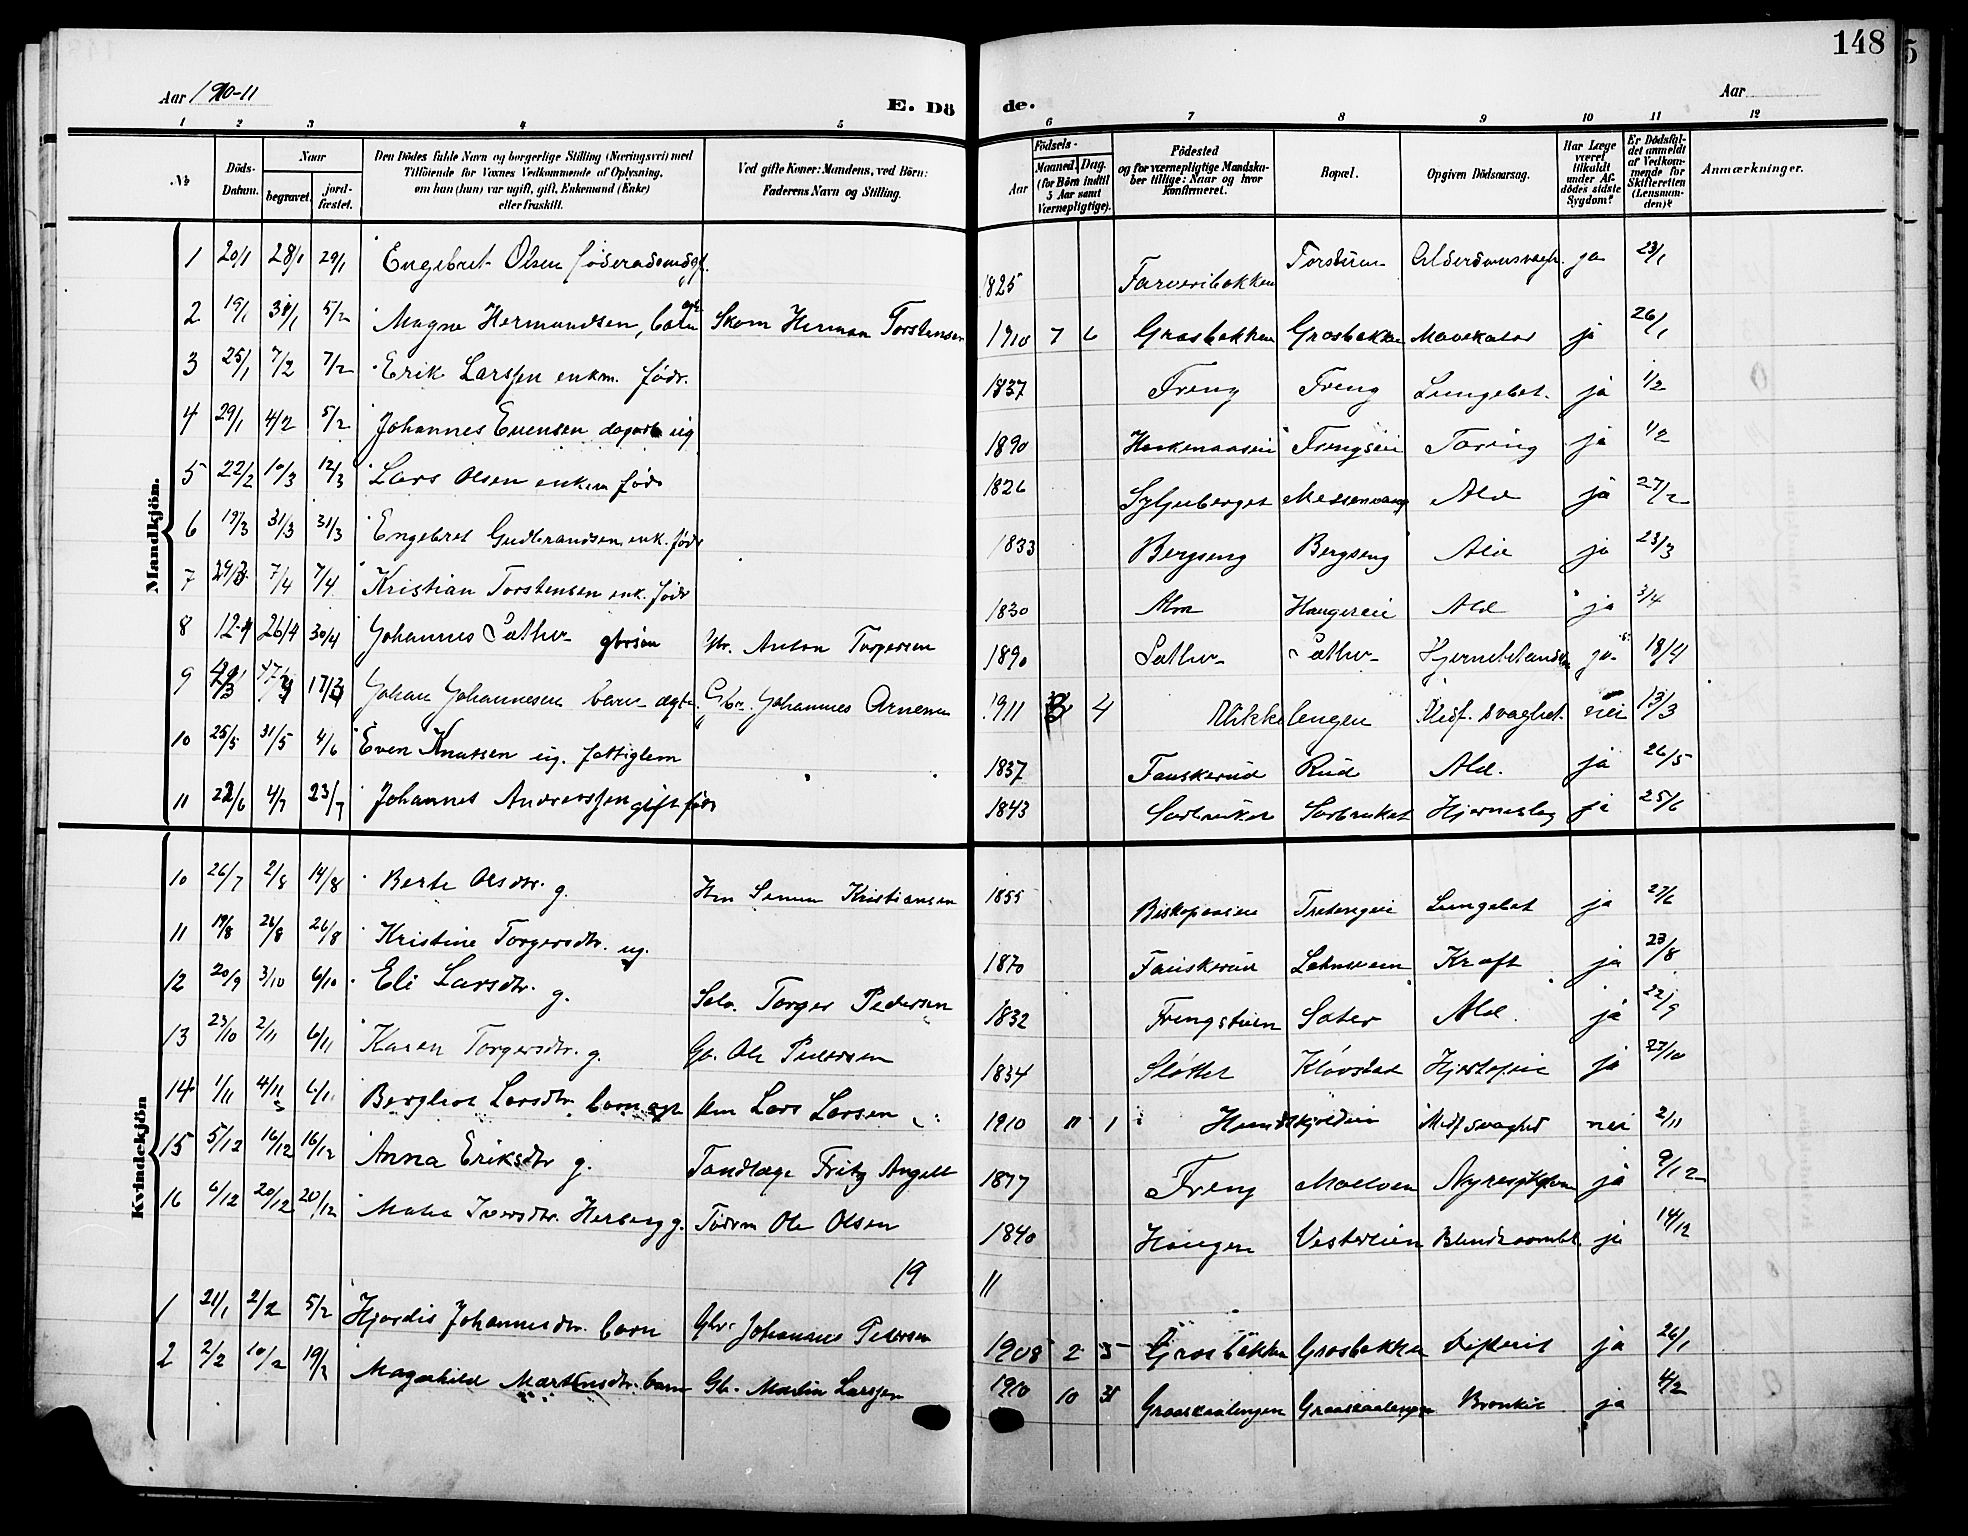 148
Aar 1910-11
E. Dö de.
Aar
1 2 3 4 5 6 7 8 9 10 11 12
No
Döds-Datum.
Naar
begravet.
jordfæstet.
Den Dödes fulde Navn og borgerlige Stilling (Næringsvei) med Tilföiende for Voxnes Vedkommende af Oplysning, om han (hun) var ugift, gift, Enkemand (Enke) eller fraskilt.
Ved gifte Koner: Mandens, ved Börn: Faderens Navn og Stilling.
Födsels-
Aar
Maaned. Dag.
(for Börn indtil 5 Aar samt Værnepligtige).
Födested og for værnepligtige Mandskaber tillige: Naar og hvor Konfirmeret.
Bopæl.
Opgiven Dödsaarsag.
Har Læge været tilkaldt under Afdödes sidste Sygdom?
Er Dödsfaldet anmeldt af Vedkommende for Skifteretten (Lensmanden)?
Anmærkninger.
Mandkjön.
1 20/1 28/1 29/1 Engebret Olsen 1825 Farveribakken ja 23/1
2 19/1 5/2 Magne Hermandsen, Skom Herman Torstensen 1910 7 6 Grosbakken Grosbakken ja 26/1
3 25/1 7/2 7/2 Erik Larssen enkm. födr. 1837 Freng Freng Lungebet. ja 1/2
4 29/1 4/2 5/2 Johannes Evensen ug 1890 Frengseie Tæring ja 1/2
5 22/2 10/3 12/3 Lars Olsen enkem född 1826 Syljuberget Messenvang Ald ja 27/2
6 19/3 31/3 31/3 Engebret Gudbrandsen enk. född 1833 Bergseng Bergseng Ald ja 23/3
7 7/4 7/4 Kristian Torstensen enk. född 1830 Alm Haugereie Ald ja 3/4
8 12-4 26/4 30/4 Johannes Sæther gbrsön Anton Torgersen 1890 Sæther Sæther ja 18/4
9 Johan Johannesen barn ægte Gbr. Johannes Arnesen 1911 3 4 Nikkelengen Medf. svaghet. nei 13/3
10 25/5 31/5 4/6 Even Knutsen ug. fattiglem 1837 Fauskerud Rud Ald. ja 26/5
11 22/6 4/7 23/7 Johannes Anderssen gift född 1843 Sorbruket Sorbruket Hjerneslag ja 25/6
Kvindekjön
10 26/7 2/8 14/8 Berte Olsdtr. g. Simen Kristiansen 1855 Lungebet ja 27/6
11 19/8 26/8 26/8 Kristine Torgersdtr. ug. 1870 Fauskerud Kræft ja 23/8
12 20/9 3/10 6/10 Eli Larsdtr. g. Selv. Torger Pedersen 1832 Frengstuen Sæter Ald. ja 22/9
13 23/10 2/11 6/11 Karen Torgersdtr. g. Gb. Ole Pedersen 1834 Sløtten Kløvstad ja 27/10
14 1/11 4/11 6/11 Bergliot Larsdtr. barn ægt Lars Larsen 1910 11 1 Medf svaghed nei 2/11
15 5/12 16/12 16/12 Anna Eriksdtr g. Tandlæge Fritz Angell 1877 Freng Moelven ja 9/12
16 6/12 20/12 20/12 Iversdtr. Herberg g. Ole Olsen 1840 Haugen Vestereien ja 14/12
19 11
1 21/1 2/2 5/2 Hjordis Johannesdtr. barn Gbr. Johannes Petersen 1908 2 5 Grosbakken Grosbakken Difterit ja 26/1
2 2/2 10/2 19/2 Magnhild Martinsdtr. barn Gb. Martin Larssen 1910 10 31 Graaskaalengen Graaskaalengen Bronkit ja 4/2